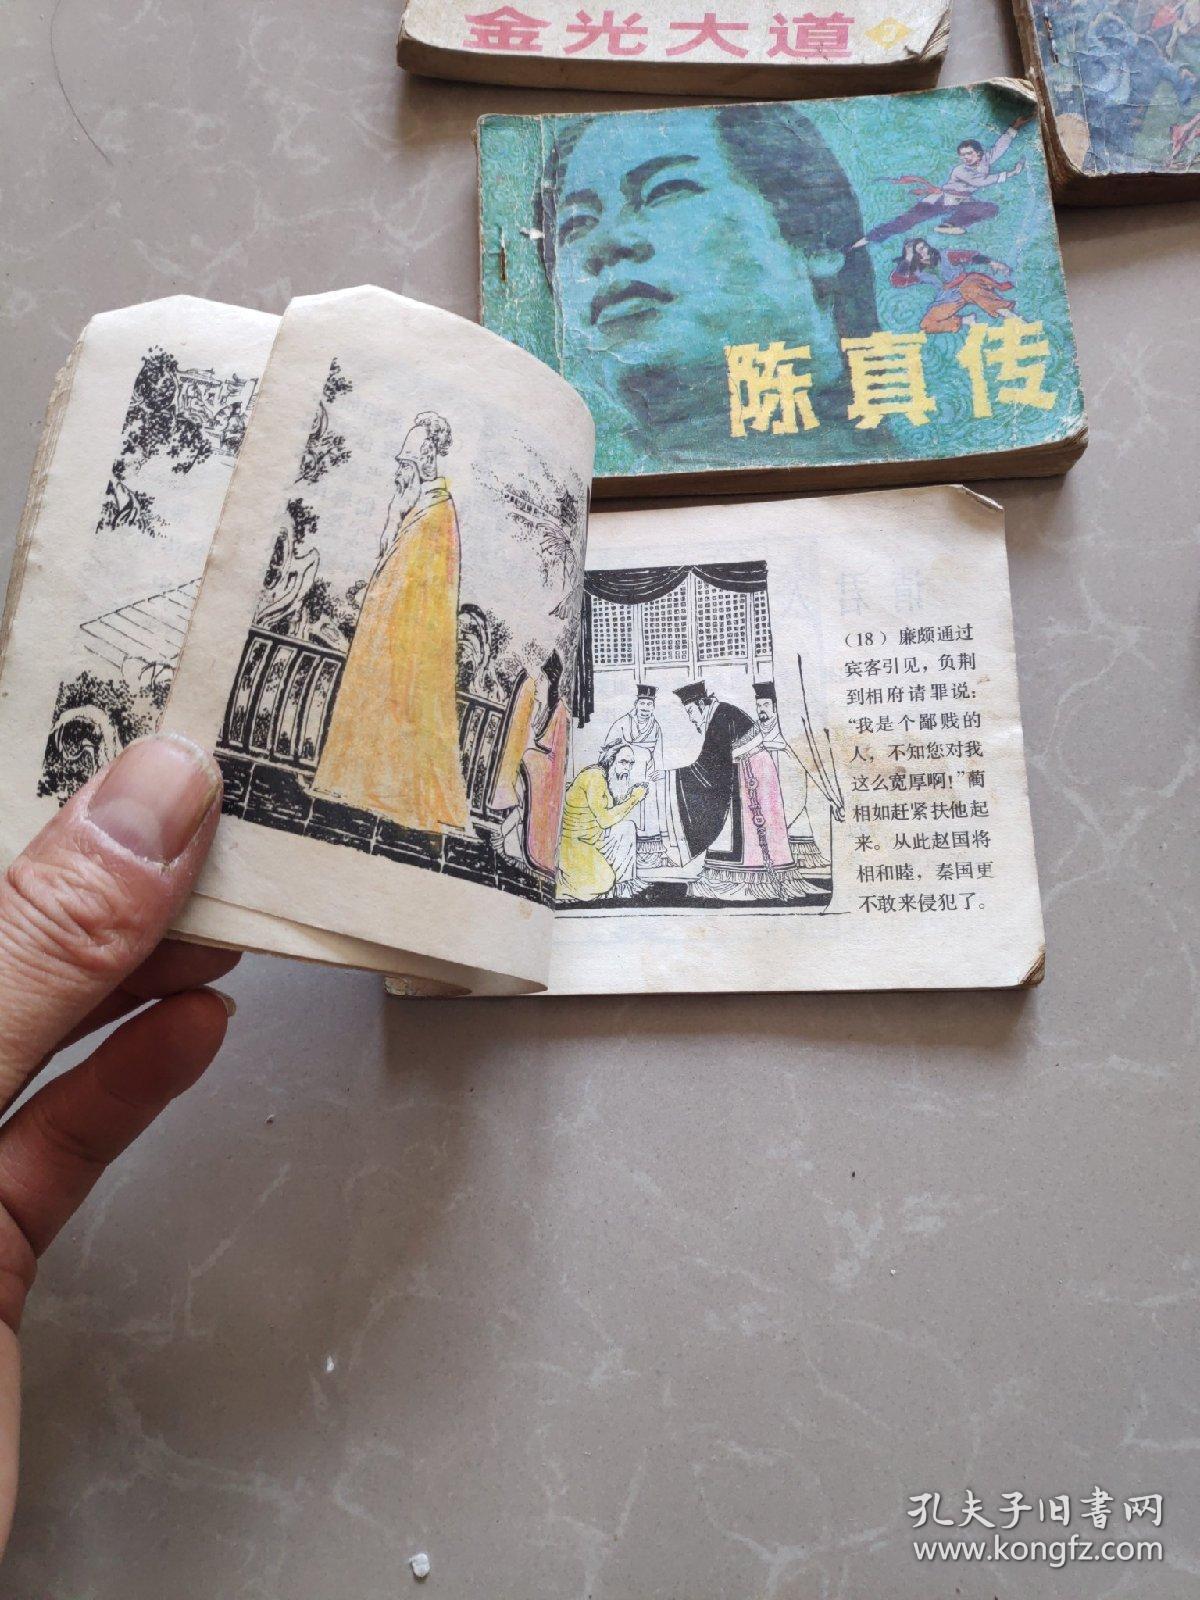 金光大道
陈真传
（18）廉颇通过
宾客引见，负荆
到相府请罪说：
“我是个鄙贱的
人，不知您对我
这么宽厚啊！”蔺
相如赶紧扶他起
来。从此赵国将
相和睦，秦国更
不敢来侵犯了。
孔夫子旧书网
www.kongfz.com